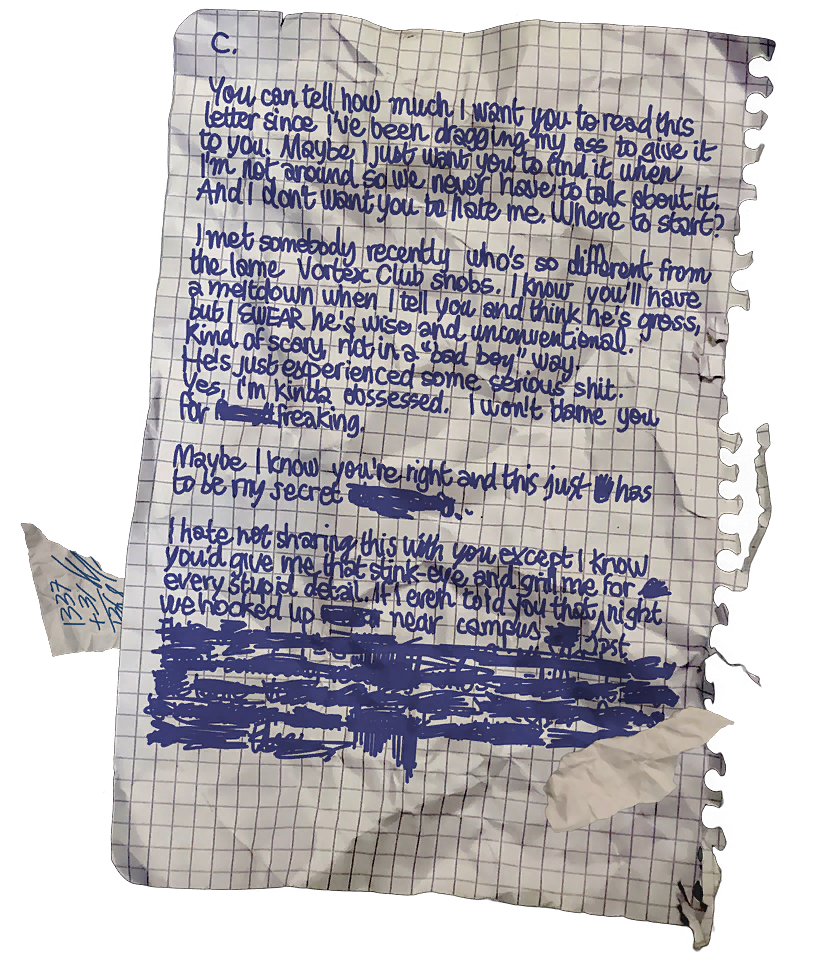 C.
You can tell how much I want you to read this
letter since I've been dragging my ass to give it
to you. Maybe I just want you to find it when
I'm not around so we never have to talk about it.
And I dont want you to hate me. Where to start?
I met somebody recently who's so different from
the lame Vortex Club snobs. I know you'll have
a meltdown when I tell you and think he's gross,
but I SWEAR he's wise and unconventional.
Kind of scary, not in a "bad boy" way.
He's just experienced some serious shit.
Yes, I'm kinda obssessed. I won't blame you
for freaking.
Maybe I know you're right and this just has
to be my secret ...
I hate not sharing this with you except I know
you'd give me that stink-eye and grill me for
every stupid detail. If I even told you that night
we hooked up near campus
1337
+37